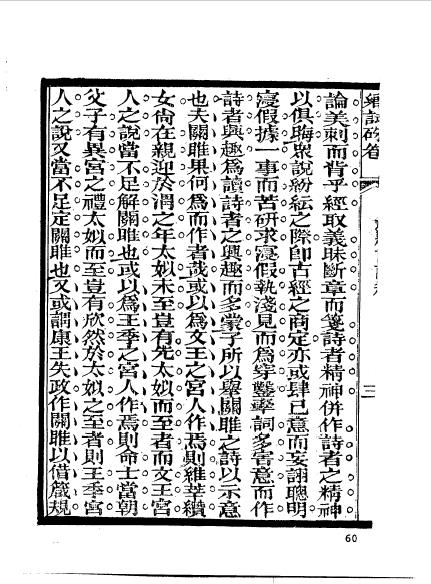 論美刺而背乎經取義昧斷章而箋詩者精神併作詩者之精神
以俱晦衆說紛紜之際卽古經之商定亦或肆己意而妄詡聰明
寖假據一事而苦研求寖假執淺見而爲穿鑿擧詞多害意而作
詩者興趣爲讀詩者之興趣而多蒙子所以舉關雎之詩以示意
也夫關雎果何爲而作者哉或以爲文王之宮人作焉則維莘纘
女尙在親迎於渭之年太姒未至豈有先太姒而至者而文王宮
人之說當不足解關雎也或以爲王季之宮人作焉則命士當朝
父子有異宮之禮太姒而至豈有欣然於太姒之至者則王季宮
人之說又當不足定關雎也又或謂康王失政作關雎以借箴規
三
60